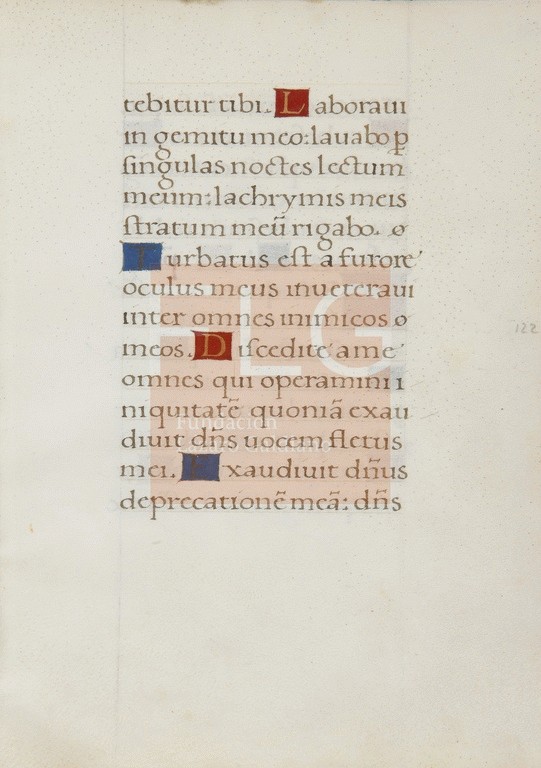 tebitur tibi. Laboraui
in gemitu meo: lauabo ꝑ
singulas noctes lectum
meum: lachrymis meis
stratum meũ rigabo. ø
Turbatus est a furore
oculus meus inueteraui
inter omnes inimicos ø
meos. Discedite a me
omnes qui operamini i
niquitatẽ quoniã exau
diuit dñs uocem fletus
mei. Exaudiuit dñus
deprecationẽ meã: dñs
122
FLG
Fundación
Lázaro Galdiano